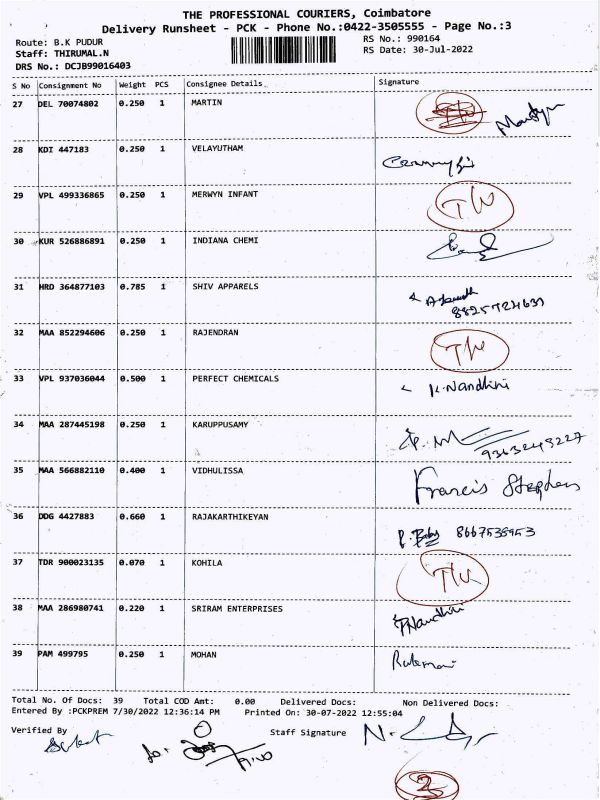 THE PROFESSIONAL COURIERS, Coimbatore
Delivery Runsheet - PCK - Phone No.:0422-3505555 - Page No.:3
Route: B.K PUDUR RS No.: 990164
Staff: THIRUMAL.N RS Date: 30-Jul-2022
DRS No.: DCJB99016403
S No Consignment No Weight PCS Consignee Details Signature
27 DEL 70074802 0.250 1 MARTIN
28 KDI 447183 0.250 1 VELAYUTHAM
29 VPL 499336865 0.250 1 MERWYN INFANT T/W
30 KUR 526886891 0.250 1 INDIANA CHEMI
31 HRD 364877103 0.785 1 SHIV APPARELS
8825724631
32 MAA 852294606 0.250 1 RAJENDRAN T/W
33 VPL 937036044 0.500 1 PERFECT CHEMICALS K.Nandhini
34 MAA 287445198 0.250 1 KARUPPUSAMY
9363248227
35 MAA 566882110 0.400 1 VIDHULISSA Francis Stephen
36 DDG 4427883 0.660 1 RAJAKARTHIKEYAN P. Baby 8667538953
37 TDR 900023135 0.070 1 KOHILA T/W
38 MAA 286980741 0.220 1 SRIRAM ENTERPRISES Nandhini
39 PAM 499795 0.250 1 MOHAN
Total No. Of Docs: 39 Total COD Amt: 0.00 Delivered Docs: Non Delivered Docs:
Entered By :PCKPREM 7/30/2022 12:36:14 PM Printed On: 30-07-2022 12:55:04
Verified By Staff Signature
2